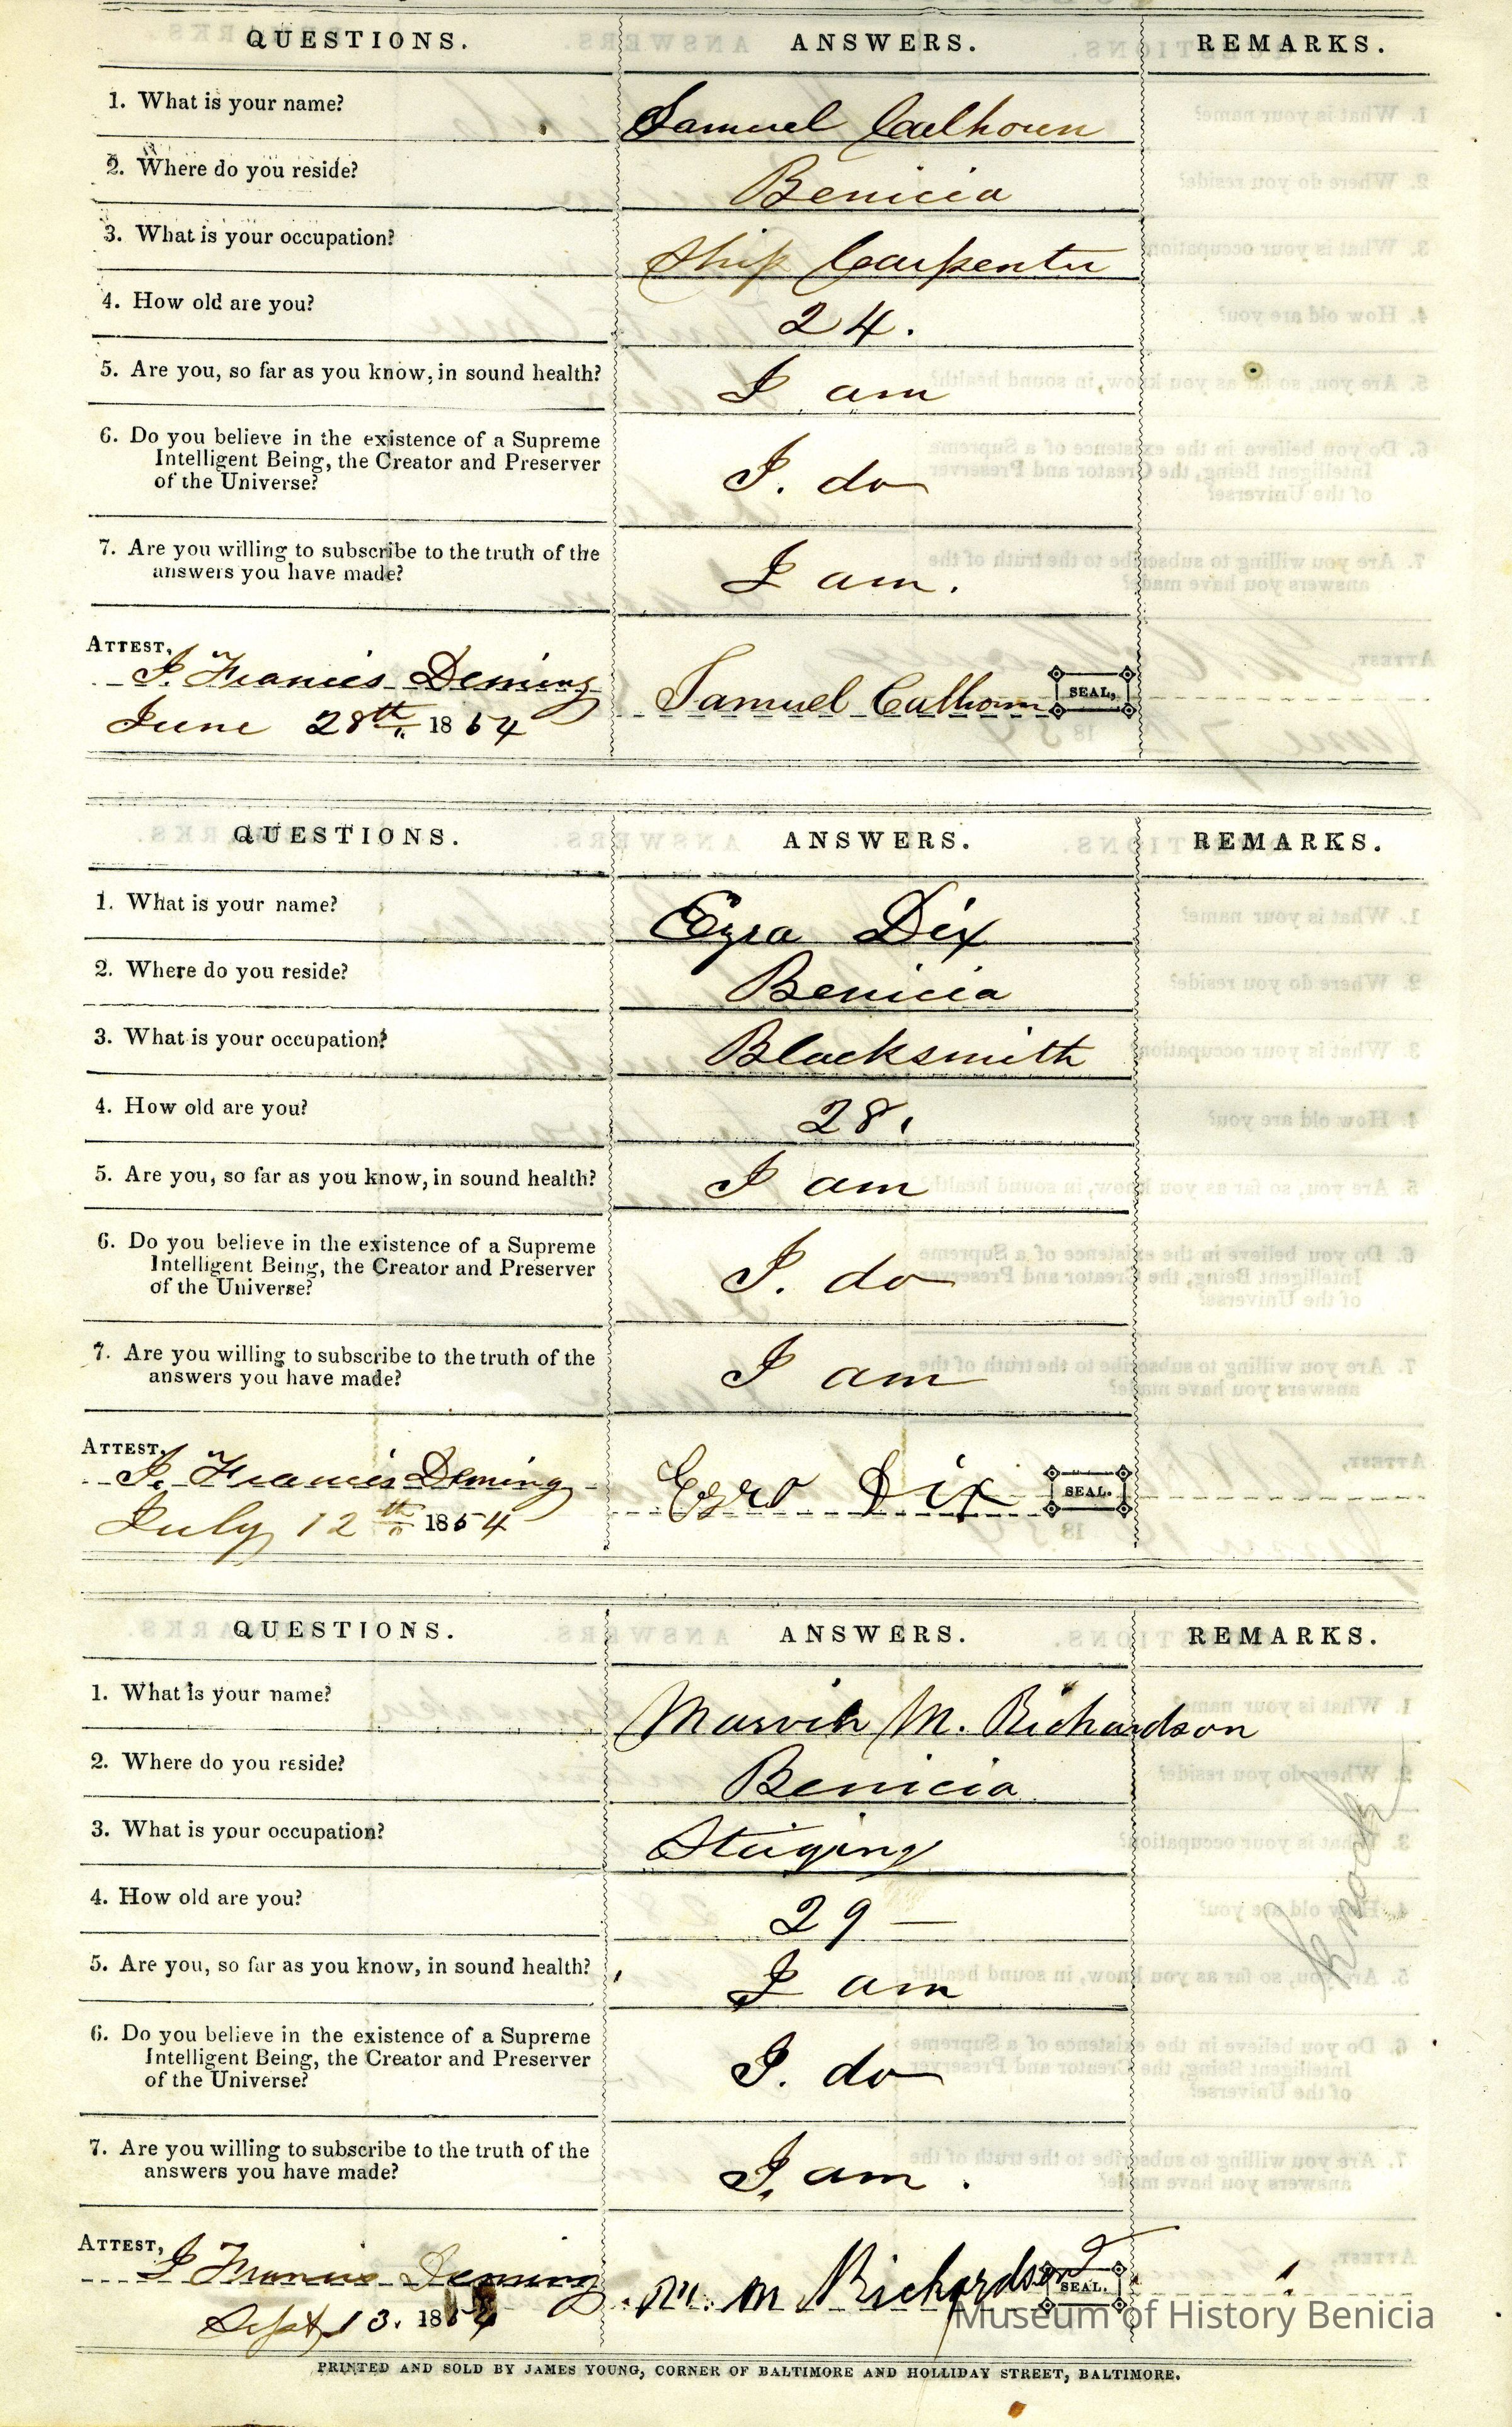 QUESTIONS. ANSWERS. REMARKS.
1. What is your name? Samuel Calhoun
2. Where do you reside? Benicia
3. What is your occupation? Ship Carpenter
4. How old are you? 24.
5. Are you, so far as you know, in sound health? I am
6. Do you believe in the existence of a Supreme
Intelligent Being, the Creator and Preserver
of the Universe? I. do
7. Are you willing to subscribe to the truth of the
answers you have made? I am.
ATTEST,
J. Francis Deming Samuel Calhoun SEAL,
June 28th, 1854
QUESTIONS. ANSWERS. REMARKS.
1. What is your name? Ezra Dix
2. Where do you reside? Benicia
3. What is your occupation? Blacksmith
4. How old are you? 28.
5. Are you, so far as you know, in sound health? I am
6. Do you believe in the existence of a Supreme
Intelligent Being, the Creator and Preserver
of the Universe? I. do
7. Are you willing to subscribe to the truth of the
answers you have made? I am
ATTEST,
J. Francis Deming Ezra Dix SEAL.
July 12th 1854
QUESTIONS. ANSWERS. REMARKS.
1. What is your name? Marvin M. Richardson
2. Where do you reside? Benicia
3. What is your occupation?
4. How old are you? 29 —
5. Are you, so far as you know, in sound health? I am
6. Do you believe in the existence of a Supreme
Intelligent Being, the Creator and Preserver
of the Universe? I. do
7. Are you willing to subscribe to the truth of the
answers you have made? I am.
ATTEST,
J Francis Deming M. M Richardson SEAL.
Sept 13. 1854
Museum of History Benicia
PRINTED AND SOLD BY JAMES YOUNG, CORNER OF BALTIMORE AND HOLLIDAY STREET, BALTIMORE.